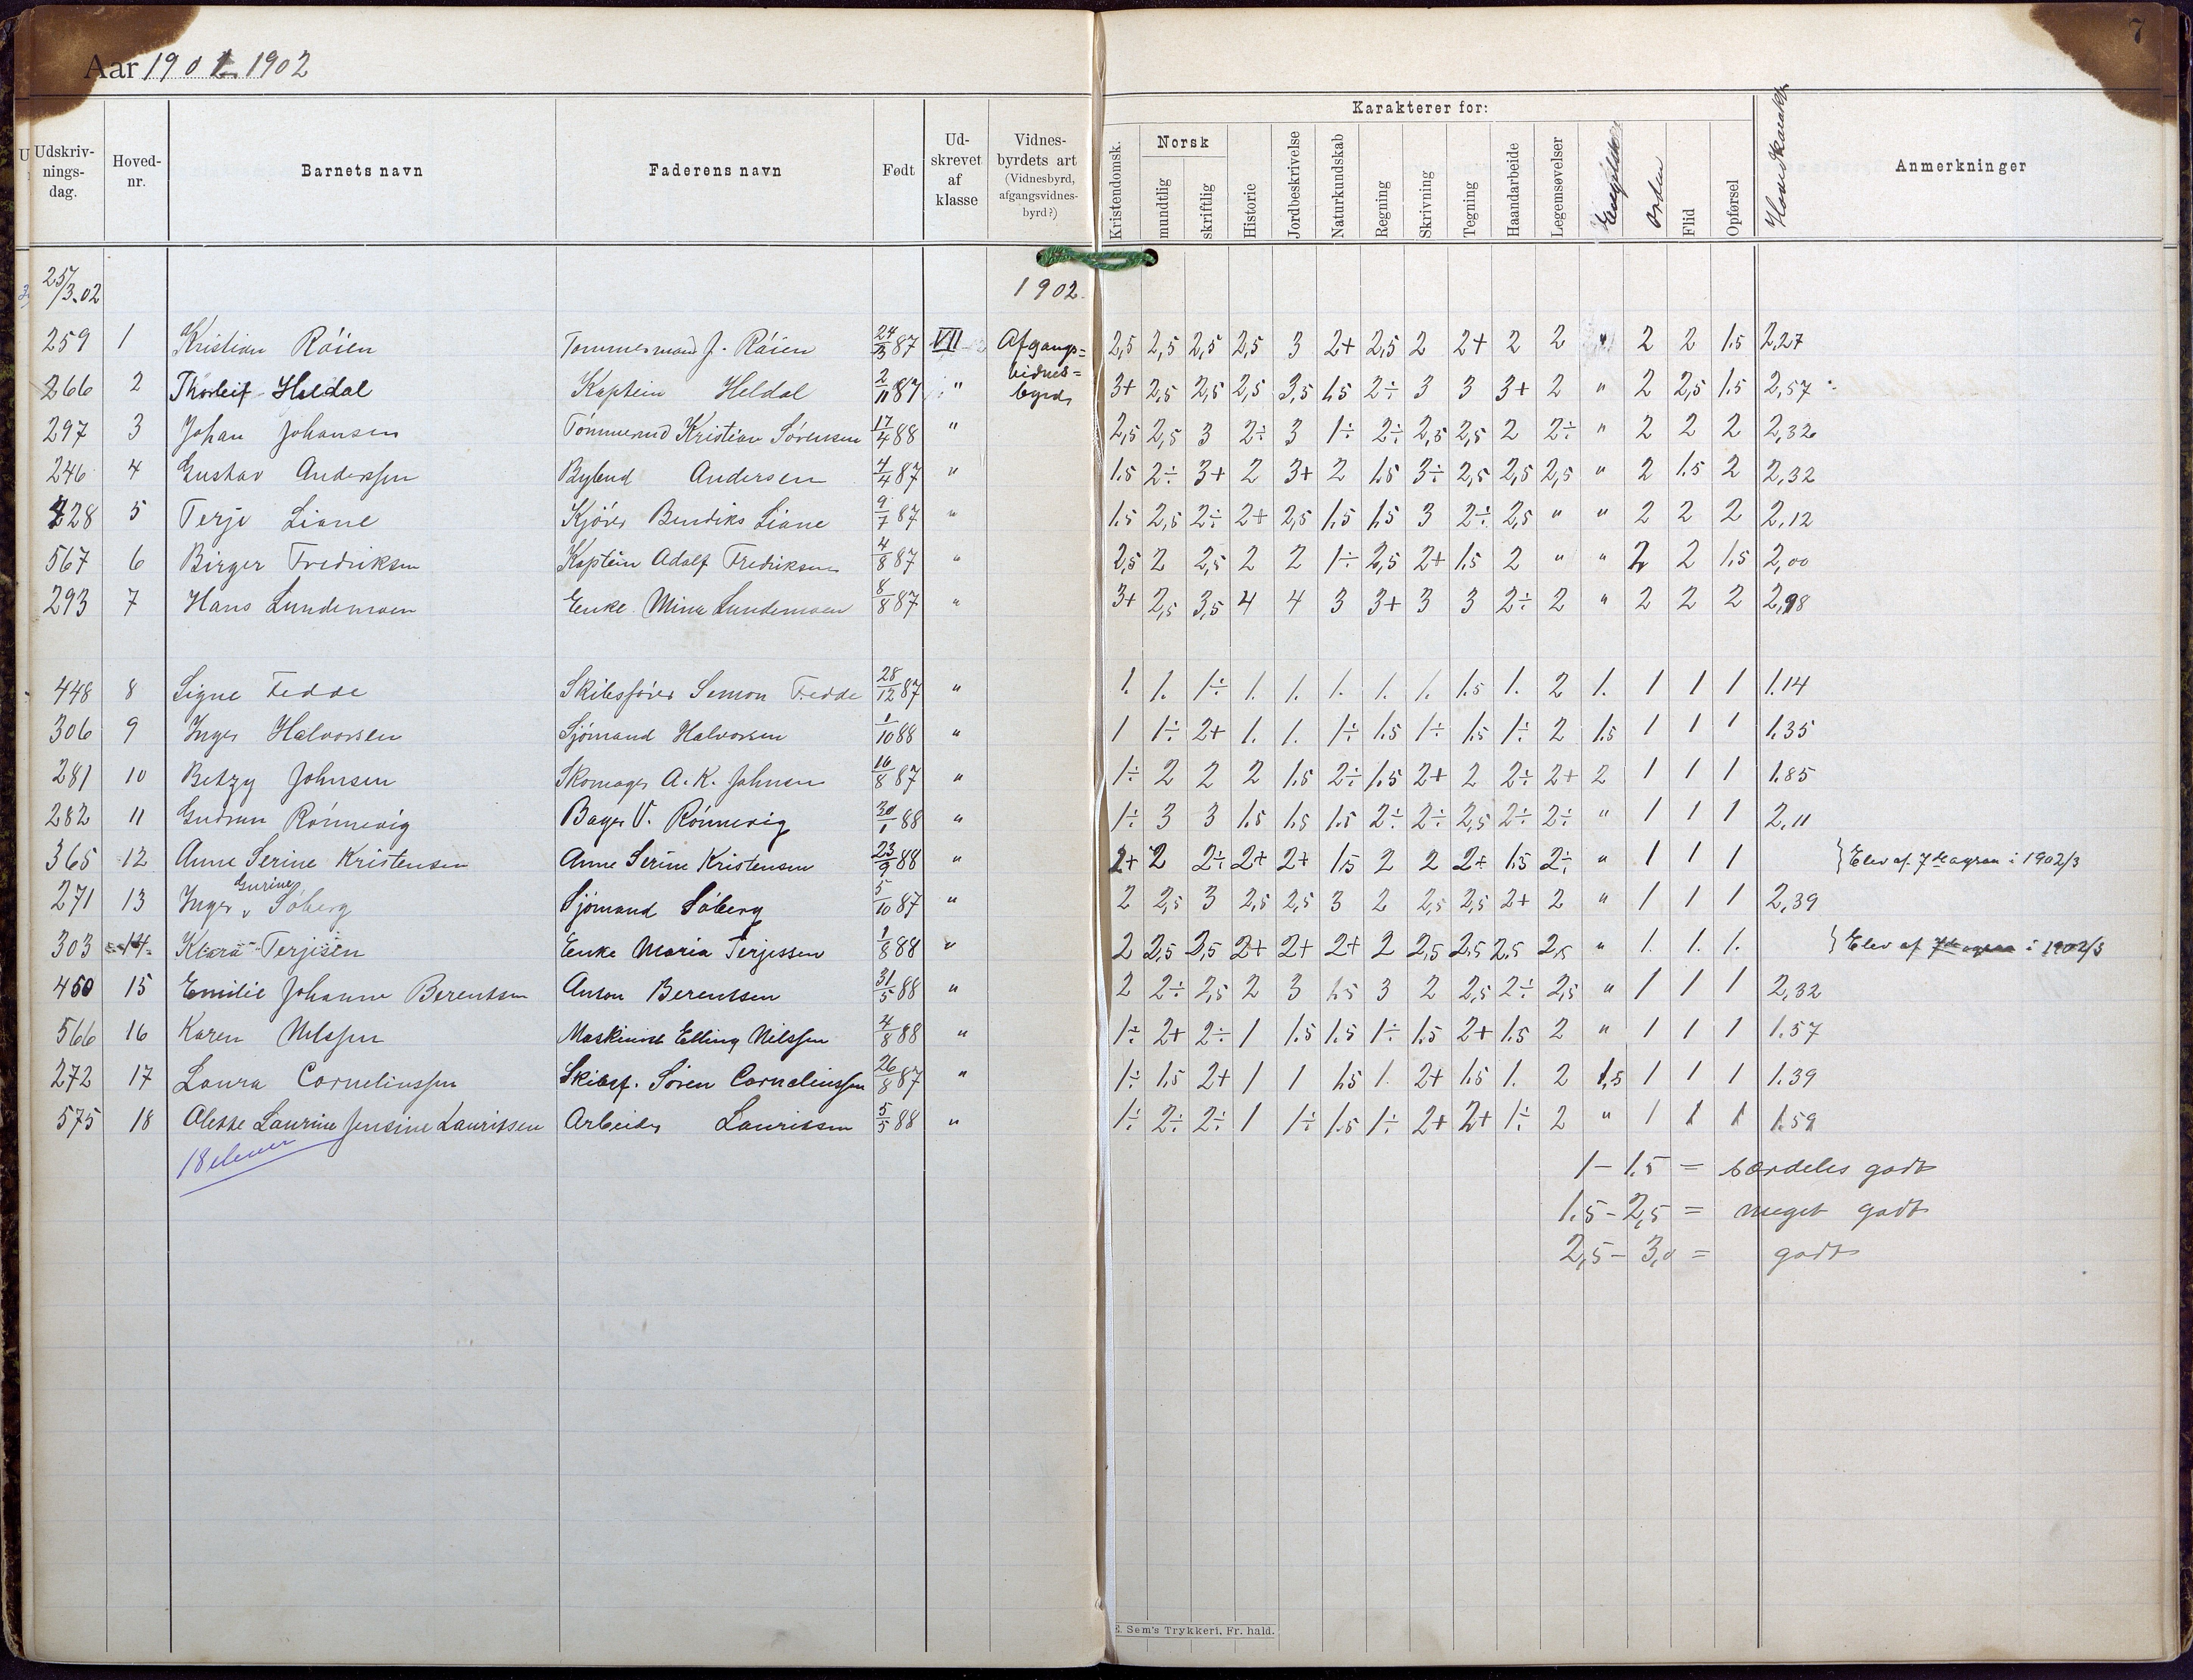 7
Aar 1901-1902
Karakterer for:
Udskriv-nings-dag. Hoved-nr. Barnets navn Faderens navn Født Ud-skrevet af klasse Vidnes-byrdets art (Vidnesbyrd, afgangsvidnes-byrd?) Kristendomsk. Norsk mundtlig skriftlig Historie Jordbeskrivelse Naturkundskab Regning Skrivning Tegning Haandarbeide Legemsøvelser Engelsk Orden Flid Opførsel Hovedkarakter Anmerkninger
25/3.02 1902.
259 1 Kristian Röien Tømmermand J. Röien 24/3 87 VII Afgangs= 2,5 2,5 2,5 2,5 3 2+ 2,5 2 2+ 2 2 " 2 2 1.5 2,27
266 2 Thorleif Heldal Kaptein Heldal 2/11 87 " vidnes= byrd 3+ 2,5 2,5 2,5 3,5 1.5 2÷ 3 3 3+ 2 " 2 2,5 1.5 2,57
297 3 Johan Johansen Tømmermd Kristian Sörensen 17/4 88 " 2,5 2,5 3 2÷ 3 1÷ 2÷ 2,5 2,5 2 2÷ " 2 2 2 2,32
246 4 Gustav Anderssen Bybud Andersen 4/4 87 " 1.5 2÷ 3+ 2 3+ 2 1.5 3÷ 2,5 2,5 2,5 " 2 1.5 2 2,32
228 5 Terje Liane Kjörer Bendiks Liane 9/7 87 " 1.5 2,5 2÷ 2+ 2,5 1.5 1.5 3 2÷ 2,5 " " 2 2 2 2,12
567 6 Birger Fredriksen Kaptein Adolf Fredriksen 4/8 87 " 2,5 2 2,5 2 2 1÷ 2,5 2+ 1.5 2 " " 2 2 1.5 2,00
293 7 Hans Lundemoen Enke Mina Lundemoen 8/8 87 " 3+ 2,5 3,5 4 4 3 3+ 3 3 2÷ 2 " 2 2 2 2,98
448 8 Signe Fedde Skibsfører Semon Fedde 28/12 87 " 1. 1. 1÷ 1. 1. 1. 1. 1. 1.5 1. 2 1. 1 1 1 1.14
306 9 Inger Halvorsen Sjömand Halvorsen 1/10 88 " 1 1÷ 2+ 1. 1. 1÷ 1.5 1÷ 1.5 1÷ 2 1.5 1 1 1 1.35
281 10 Betzy Johnsen Skomager A. K. Johnsen 16/8 87 " 1÷ 2 2 2 1.5 2÷ 1.5 2+ 2 2÷ 2+ 2 1 1 1 1.85
282 11 Gudrun Rönnevig Bager V. Rönnevig 30/1 88 " 1÷ 3 3 1.5 1.5 1.5 2÷ 2÷ 2,5 2÷ 2÷ " 1 1 1 2,11
365 12 Anne Serine Kristensen Anne Serine Kristensen 23/9 88 " 2+ 2 2÷ 2+ 2+ 1.5 2 2 2+ 1.5 2÷ " 1 1 1 } Elev af 7de agraa i 1902/3
Gurine
271 13 Inger Söberg Sjömand Söberg 5/10 87 " 2 2,5 3 2,5 2,5 3 2 2,5 2,5 2+ 2 " 1 1 1 2,39
303 14 Klara Terjesen Enke Maria Terjessen 1/8 88 " 2 2,5 3,5 2+ 2+ 2+ 2 2,5 2,5 2,5 2,5 " 1. 1. 1. } Elev af 7de agraa i 1902/3
450 15 Emilie Johanne Berentsen Anton Berentsen 31/5 88 " 2 2÷ 2,5 2 3 1.5 3 2 2,5 2÷ 2,5 " 1 1 1 2,32
566 16 Karen Nilssen Maskinist Elling Nilssen 4/8 88 " 1÷ 2+ 2÷ 1 1.5 1.5 1÷ 1.5 2+ 1.5 2 " 1 1 1 1.57
272 17 Laura Corneliussen Skibsf. Sören Corneliussen 26/8 87 " 1÷ 1.5 2+ 1 1 1.5 1. 2+ 1.5 1. 2 1,5 1 1 1 1.39
575 18 Aleske Laurine Jensine Lauritsen Arbeider Lauritsen 5/5 88 " 1÷ 2÷ 2÷ 1 1÷ 1.5 1÷ 2+ 2+ 1÷ 2 " 1 1 1 1.59
18 elever
1 - 1.5 = særdeles godt
1.5 - 2,5 = meget godt
2,5 - 3,0 = godt
E. Sem's Trykkeri. Fr. hald.